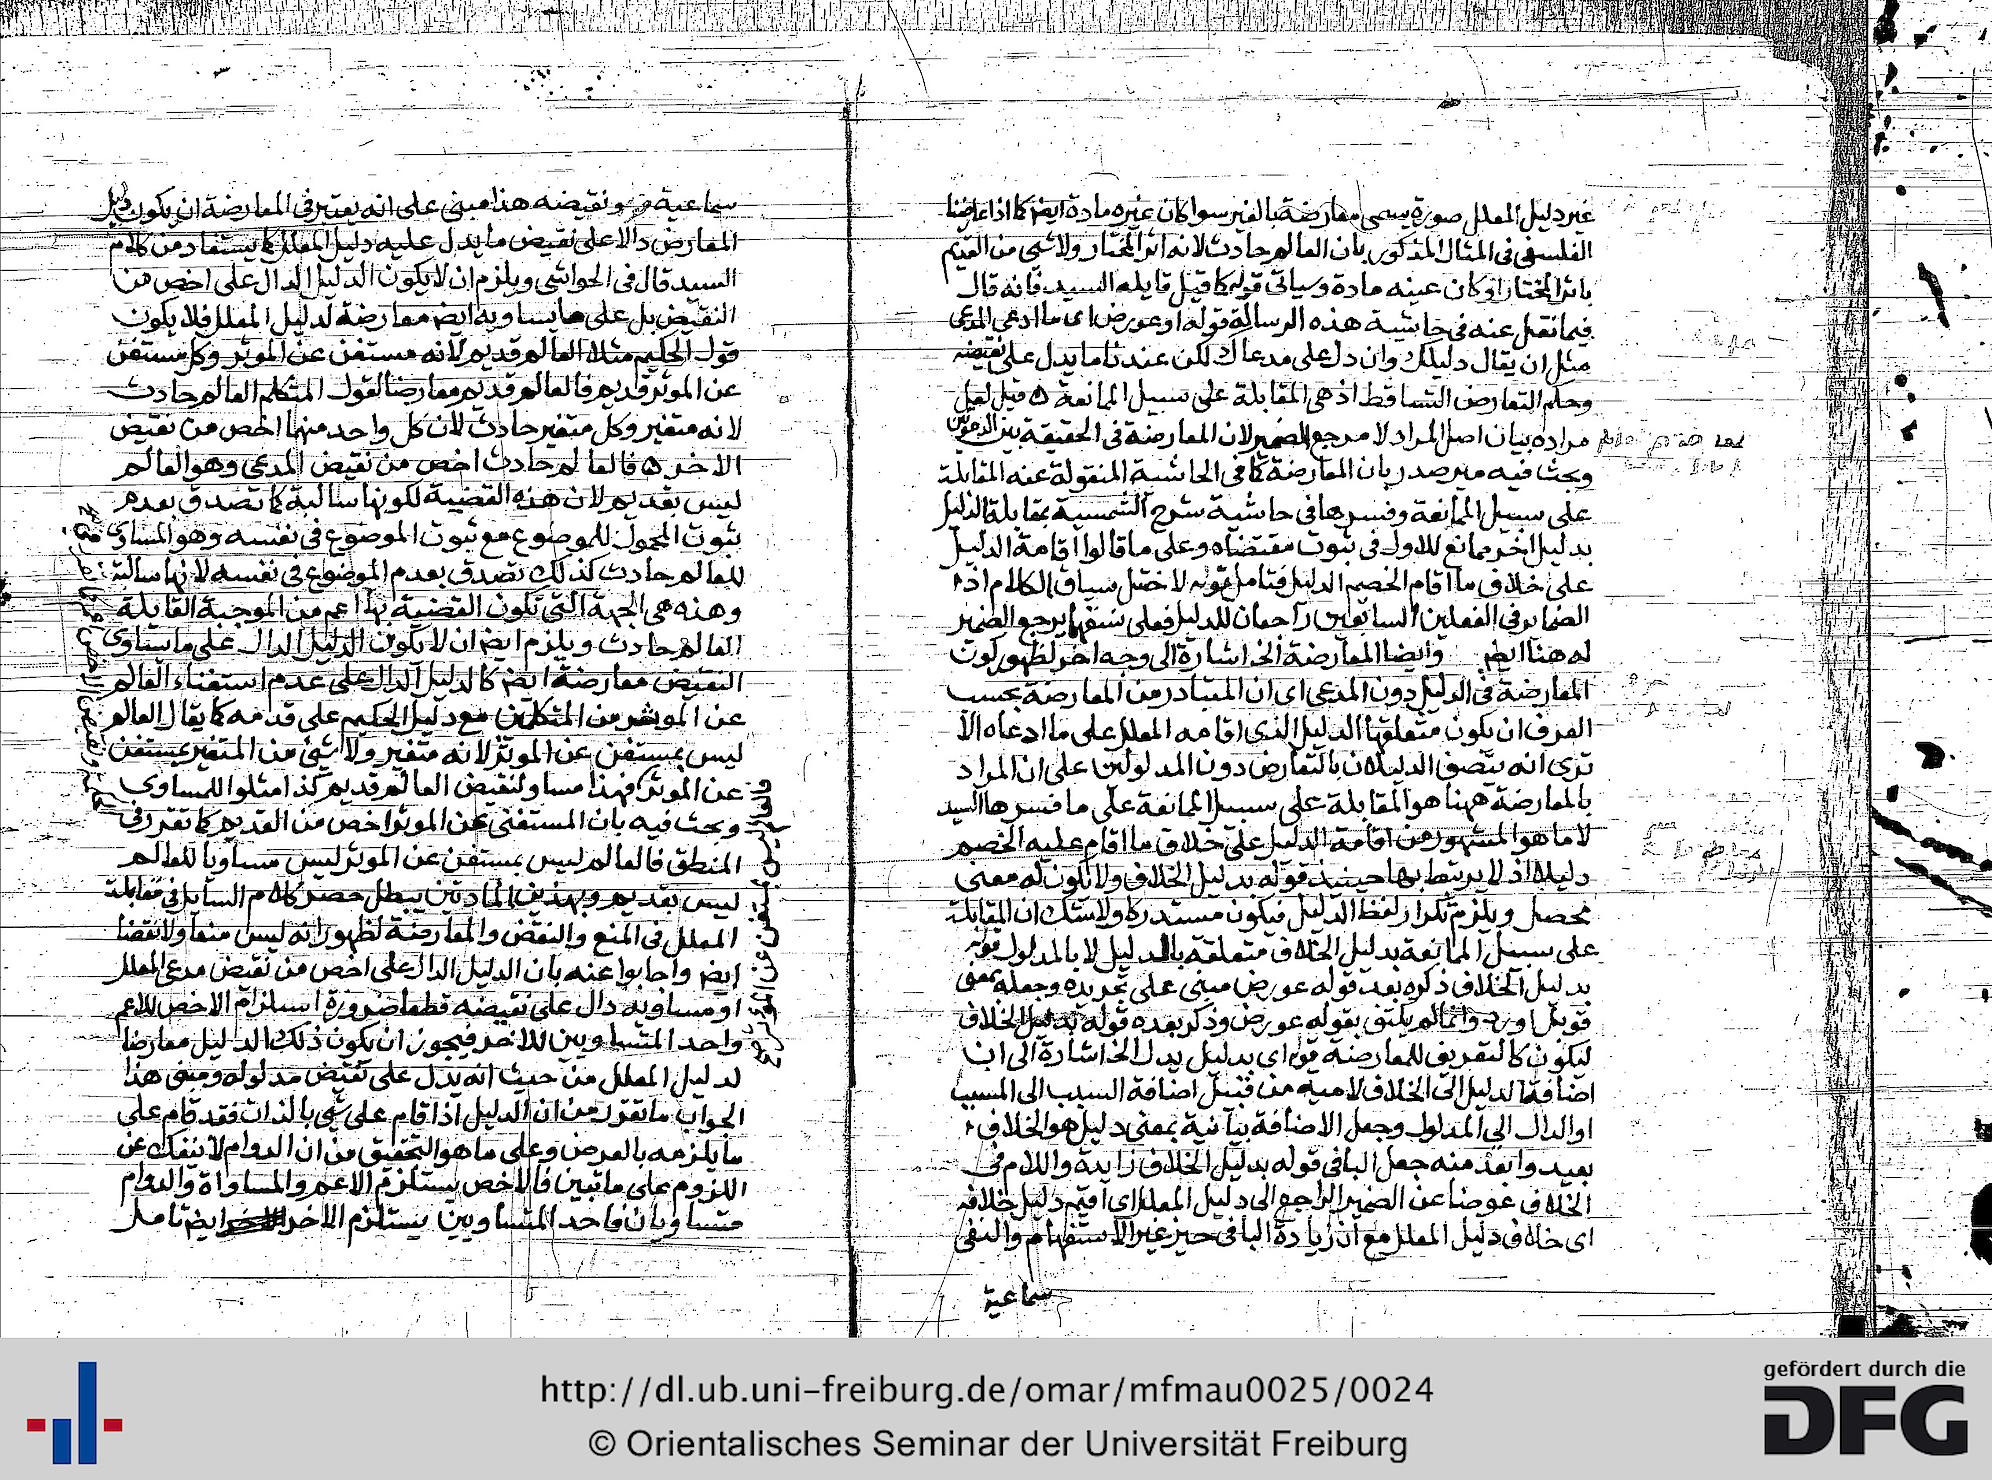 غير دليل المعلل صورة يسمى معارضة بالغير سوا كان غيره مادة ايضا كما اذا عارضنا
الفلسفى فى المثال المذكور بان العالم حادث لانه اثر المختار ولا شى من القديم
باثر المختار او كان عينه مادة وسياتى قوله كما قيل قايله السيد فانه قال
فيما نقل عنه فى حاشية هذه الرسالة قوله او عورض اى ما ادعى المدعى
مثل ان يقال دليلك وان دل على مدعاك لكن عندنا ما يدل على نقيضه
وحكم التعارض التساقط اذ هى المقابلة على سبيل الممانعة ه قيل لعل
مراده بيان اصل المراد لا مرجع الضمير لان المعارضة فى الحقيقة بين الدعوتين
وبحث فيه مير صدر بان المعارضة كما فى الحاشية المنقولة عنه المقابلة
على سبيل الممانعة وفسرها فى حاشية شرح الشمسية بمقابلة الدليل
بدليل اخر ممانع للاول فى ثبوت مقتضاه وعلى ما قالوا اقامة الدليل
على خلاف ما اقام الخصم الدليل فتامل قوله لاختل سياق الكلام اذ
الضماير فى الفعلين السابقين راجعان للدليل فعلى نسقها يرجع الضمير
له هنا ايضا وايضا المعارضة الخ اشارة الى وجه اخر لظهور كون
المعارضة فى الدليل دون المدعى اى ان المتبادر من المعارضة بحسب
العرف ان يكون متعلقها الدليل الذى اقامه المعلل على ما ادعاه الا
ترى انه يتصف الدليلان بالتعارض دون المدلولين على ان المراد
بالمعارضة ههنا هو المقابلة على سبيل الممانعة على ما فسرها السيد
لا ما هو المشهور من اقامة الدليل على خلاف ما اقام عليه الخصم
دليله اذ لا يرتبط بها حينيذ قوله بدليل الخلاف ولا يكون له معنى
محصل ويلزم تكرار لفظ الدليل فيكون مستدركا ولا شك ان المقابلة
على سبيل الممانعة بدليل الخلاف متعلقة بالدليل لا بالمدلول قوله
بدليل الخلاف ذكره بعد قوله عورض مبنى على تجريده وجعله بمعنى
قوبل او وانما لم يكتف بقوله عورض وذكر بعده قوله بدليل الخلاف
ليكون كالتعريف للمعارضة قوله اى بدليل يدل الخ اشارة الى ان
اضافة الدليل الى الخلاف لامية من قبيل اضافة السبب الى المسبب
او الدال الى المدلول وجعل الاضافة بيانية بمعنى دليل هو الخلاف
بعيد وابعد منه جعل البا فى قوله بدليل الخلاف زايدة واللام فى
الخلاف عوضا عن الضمير الراجع الى دليل المعلل اى اقيم دليل خلافه
اى خلاف دليل المعلل مع ان زيادة البا فى حيز غير الاستفهام والنفى
سماعية
سماعية ونقيضه هذا مبنى على انه يعتبر فى المعارضة ان يكون دليل
المعارض دالا على نقيض ما يدل عليه دليل المعلل كما يستفاد من كلام
السيد قال فى الحواشى ويلزم ان لا يكون الدليل الدال على اخص من
النقيض بل على ما يساويه ايضا معارضة لدليل المعلل فلا يكون
قول الحكيم مثلا العالم قديم لانه مستغن عن الموثر وكل مستغن
عن الموثر قديم فالعالم قديم معارضا لقول المتكلم العالم حادث
لانه متغير وكل متغير حادث لان كل واحد منهما اخص من نقيض
الاخر ه فالعالم حادث اخص من نقيض المدعى وهو العالم
ليس بقديم لان هذه القضية لكونها سالبة كما تصدق بعدم
ثبوت المحمول للموضوع مع ثبوت الموضوع فى نفسه وهو المساوى
للعالم حادث كذلك تصدق بعدم الموضوع فى نفسه لانها سالبة
وهذه هى الجهة التى تكون القضية بها اعم من الموجبة القايلة
العالم حادث ويلزم ايضا ان لا يكون الدليل الدال على ما يساوى
النقيض معارضة ايضا كالدليل الدال على عدم استغناء العالم
عن الموثر من المتكلمين مع دليل الحكيم على قدمه كما يقال العالم
ليس بمستغن عن الموثر لانه متغير ولا شئ من المتغير بمستغن
عن الموثر فهذا مساو لنقيض العالم قديم كذا مثلوا للمساوى
وبحث فيه بان المستغنى عن الموثر اخص من القديم كما تقرر فى
المنطق فالعالم ليس بمستغن عن الموثر ليس مساويا للعالم
ليس بقديم وبهذين المادتين يبطل حصر كلام السايل فى مقابلة
المعلل فى المنع والنقض والمعارضة لظهور انه ليس منعا ولا نقضا
ايضا واجابوا عنه بان الدليل الدال على اخص من نقيض مدعى المعلل
او مساويه دال على نقيضه قطعا ضرورة استلزام الاخص للاعم
واحد المتساويين للاخر فيجوز ان يكون ذلك الدليل معارضا
لدليل المعلل من حيث انه يدل على نقيض مدلوله ومبنى هذا
الجواب ما تقرر من ان الدليل اذا قام على شى بالذات فقد قام على
ما يلزمه بالعرض وعلى ما هو التحقيق من ان الدوام لا ينفك عن
اللزوم على ما تبين فالاخص يستلزم الاعم والمساواة والدوام
متساويان فاحد المتساويين يستلزم الاخر ايضا تامل
http://dl.ub.uni-freiburg.de/omar/mfmau0025/0024
© Orientalisches Seminar der Universität Freiburg
gefördert durch die
DFG